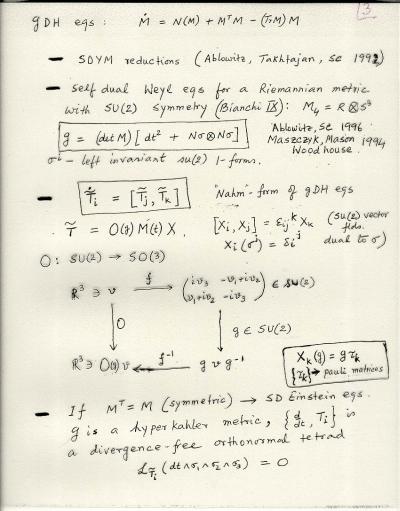 3
gDH eqs : Ṁ = N(M) + MᵀM − (TrM) M
— SDYM reductions (Ablowitz, Takhtajan, SC 1992)
— Self dual Weyl eqs for a Riemannian metric
with SU(2) symmetry (Bianchi IX) : M₄ = R ⊗ S³
g = (det M) [ dt² + Nσ⊗Nσ ]
Ablowitz, SC 1996
Maszczyk, Mason 1994
Woodhouse
σⁱ – left invariant su(2) 1-forms.
— T̃̇ᵢ = [T̃ⱼ, T̃ₖ] "Nahm"-form of gDH eqs
T̃ = O(g) M(t) X , [Xᵢ, Xⱼ] = εᵢⱼᵏ Xₖ (su(2) vector
Xᵢ(σʲ) = δᵢʲ flds. dual to σ)
O : SU(2) → SO(3)
R³ ∋ v f→ ( iv₃ −v₁+iv₂
v₁+iv₂ −iv₃ ) ∈ su(2)
↓ O ↓ g ∈ SU(2)
R³ ∋ O(g)v ←f⁻¹ g v g⁻¹
Xₖ(g) = gτₖ
{τₖ} → pauli matrices
— If Mᵀ = M (symmetric) → SD Einstein eqs.
g is a hyperkahler metric, {d/dt, Tᵢ} is
a divergence-free orthonormal tetrad
ℒ_T̃ᵢ (dt∧σ₁∧σ₂∧σ₃) = 0